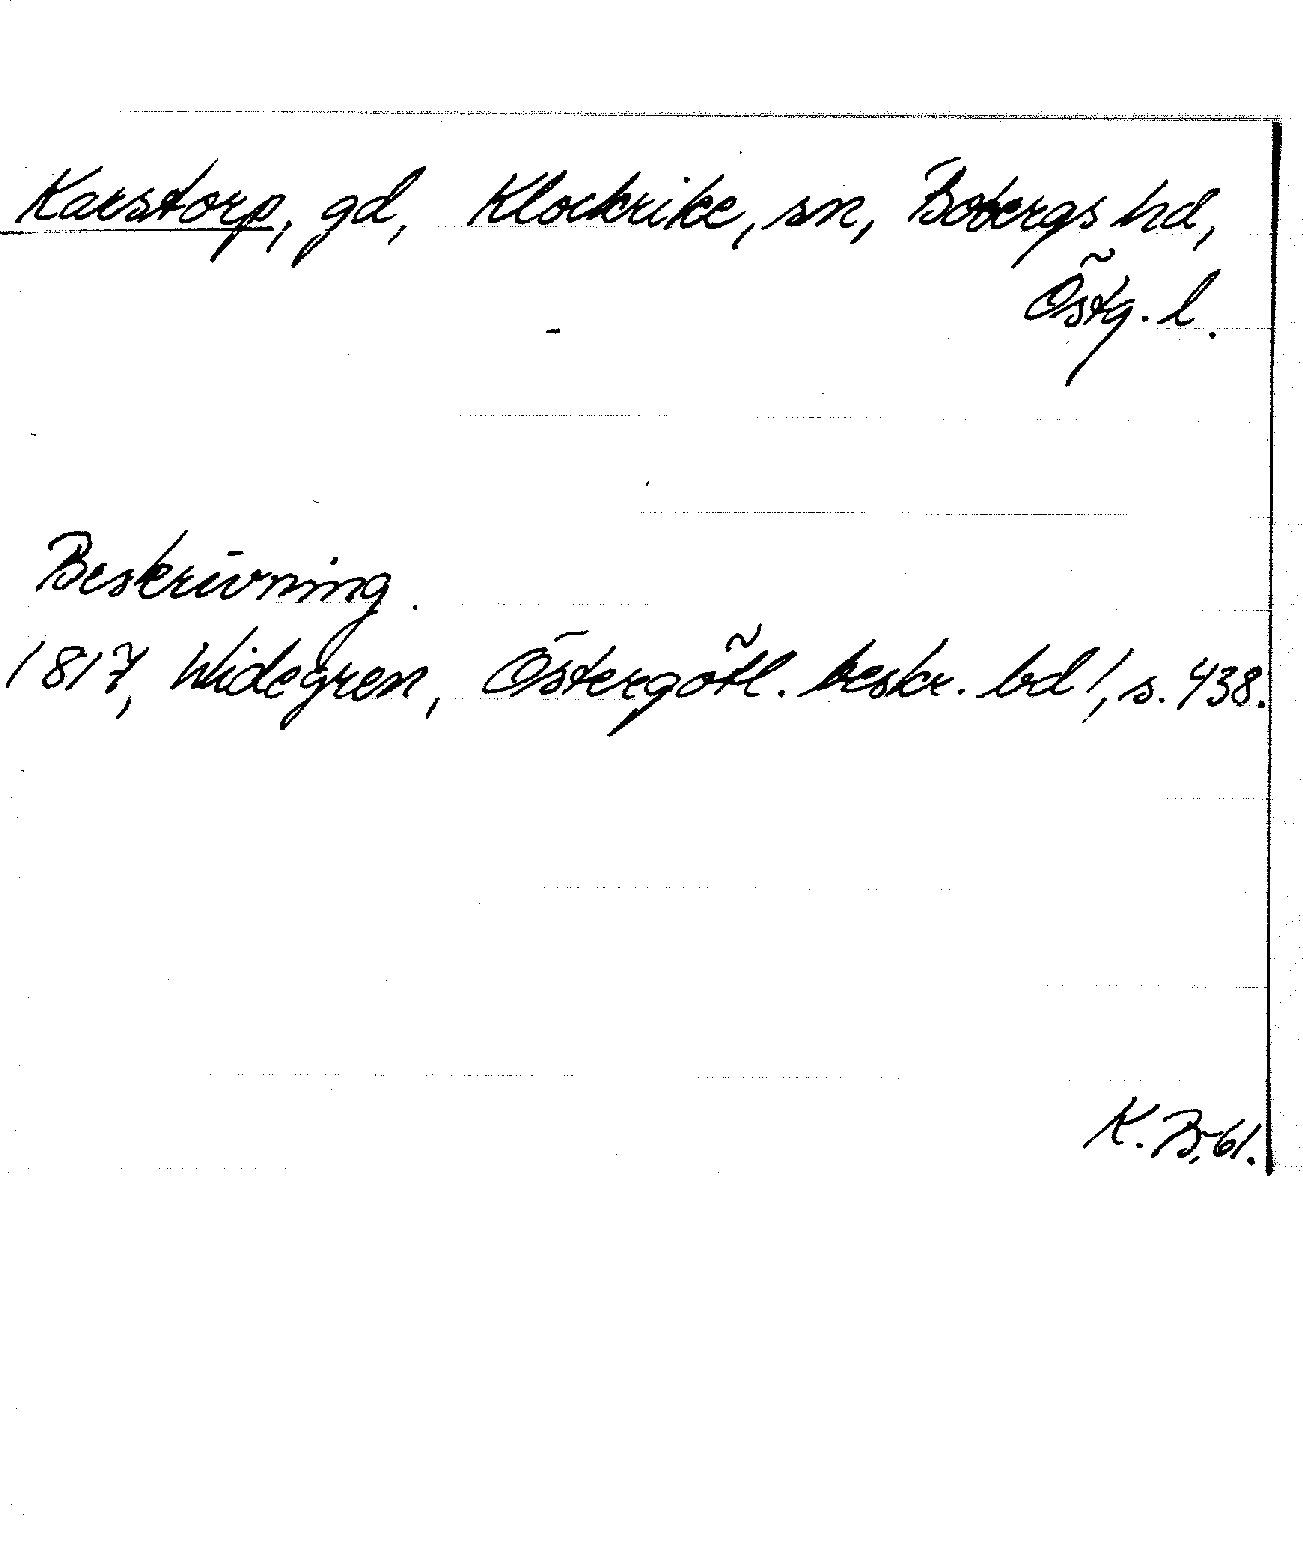 Karstorp, gd, Klockrike, sn, Bobergs hd,
Östg. l.
Beskrivning.
1817, Widegren, Östergötl. beskr. bd 1, s. 438.
K. B, 61.